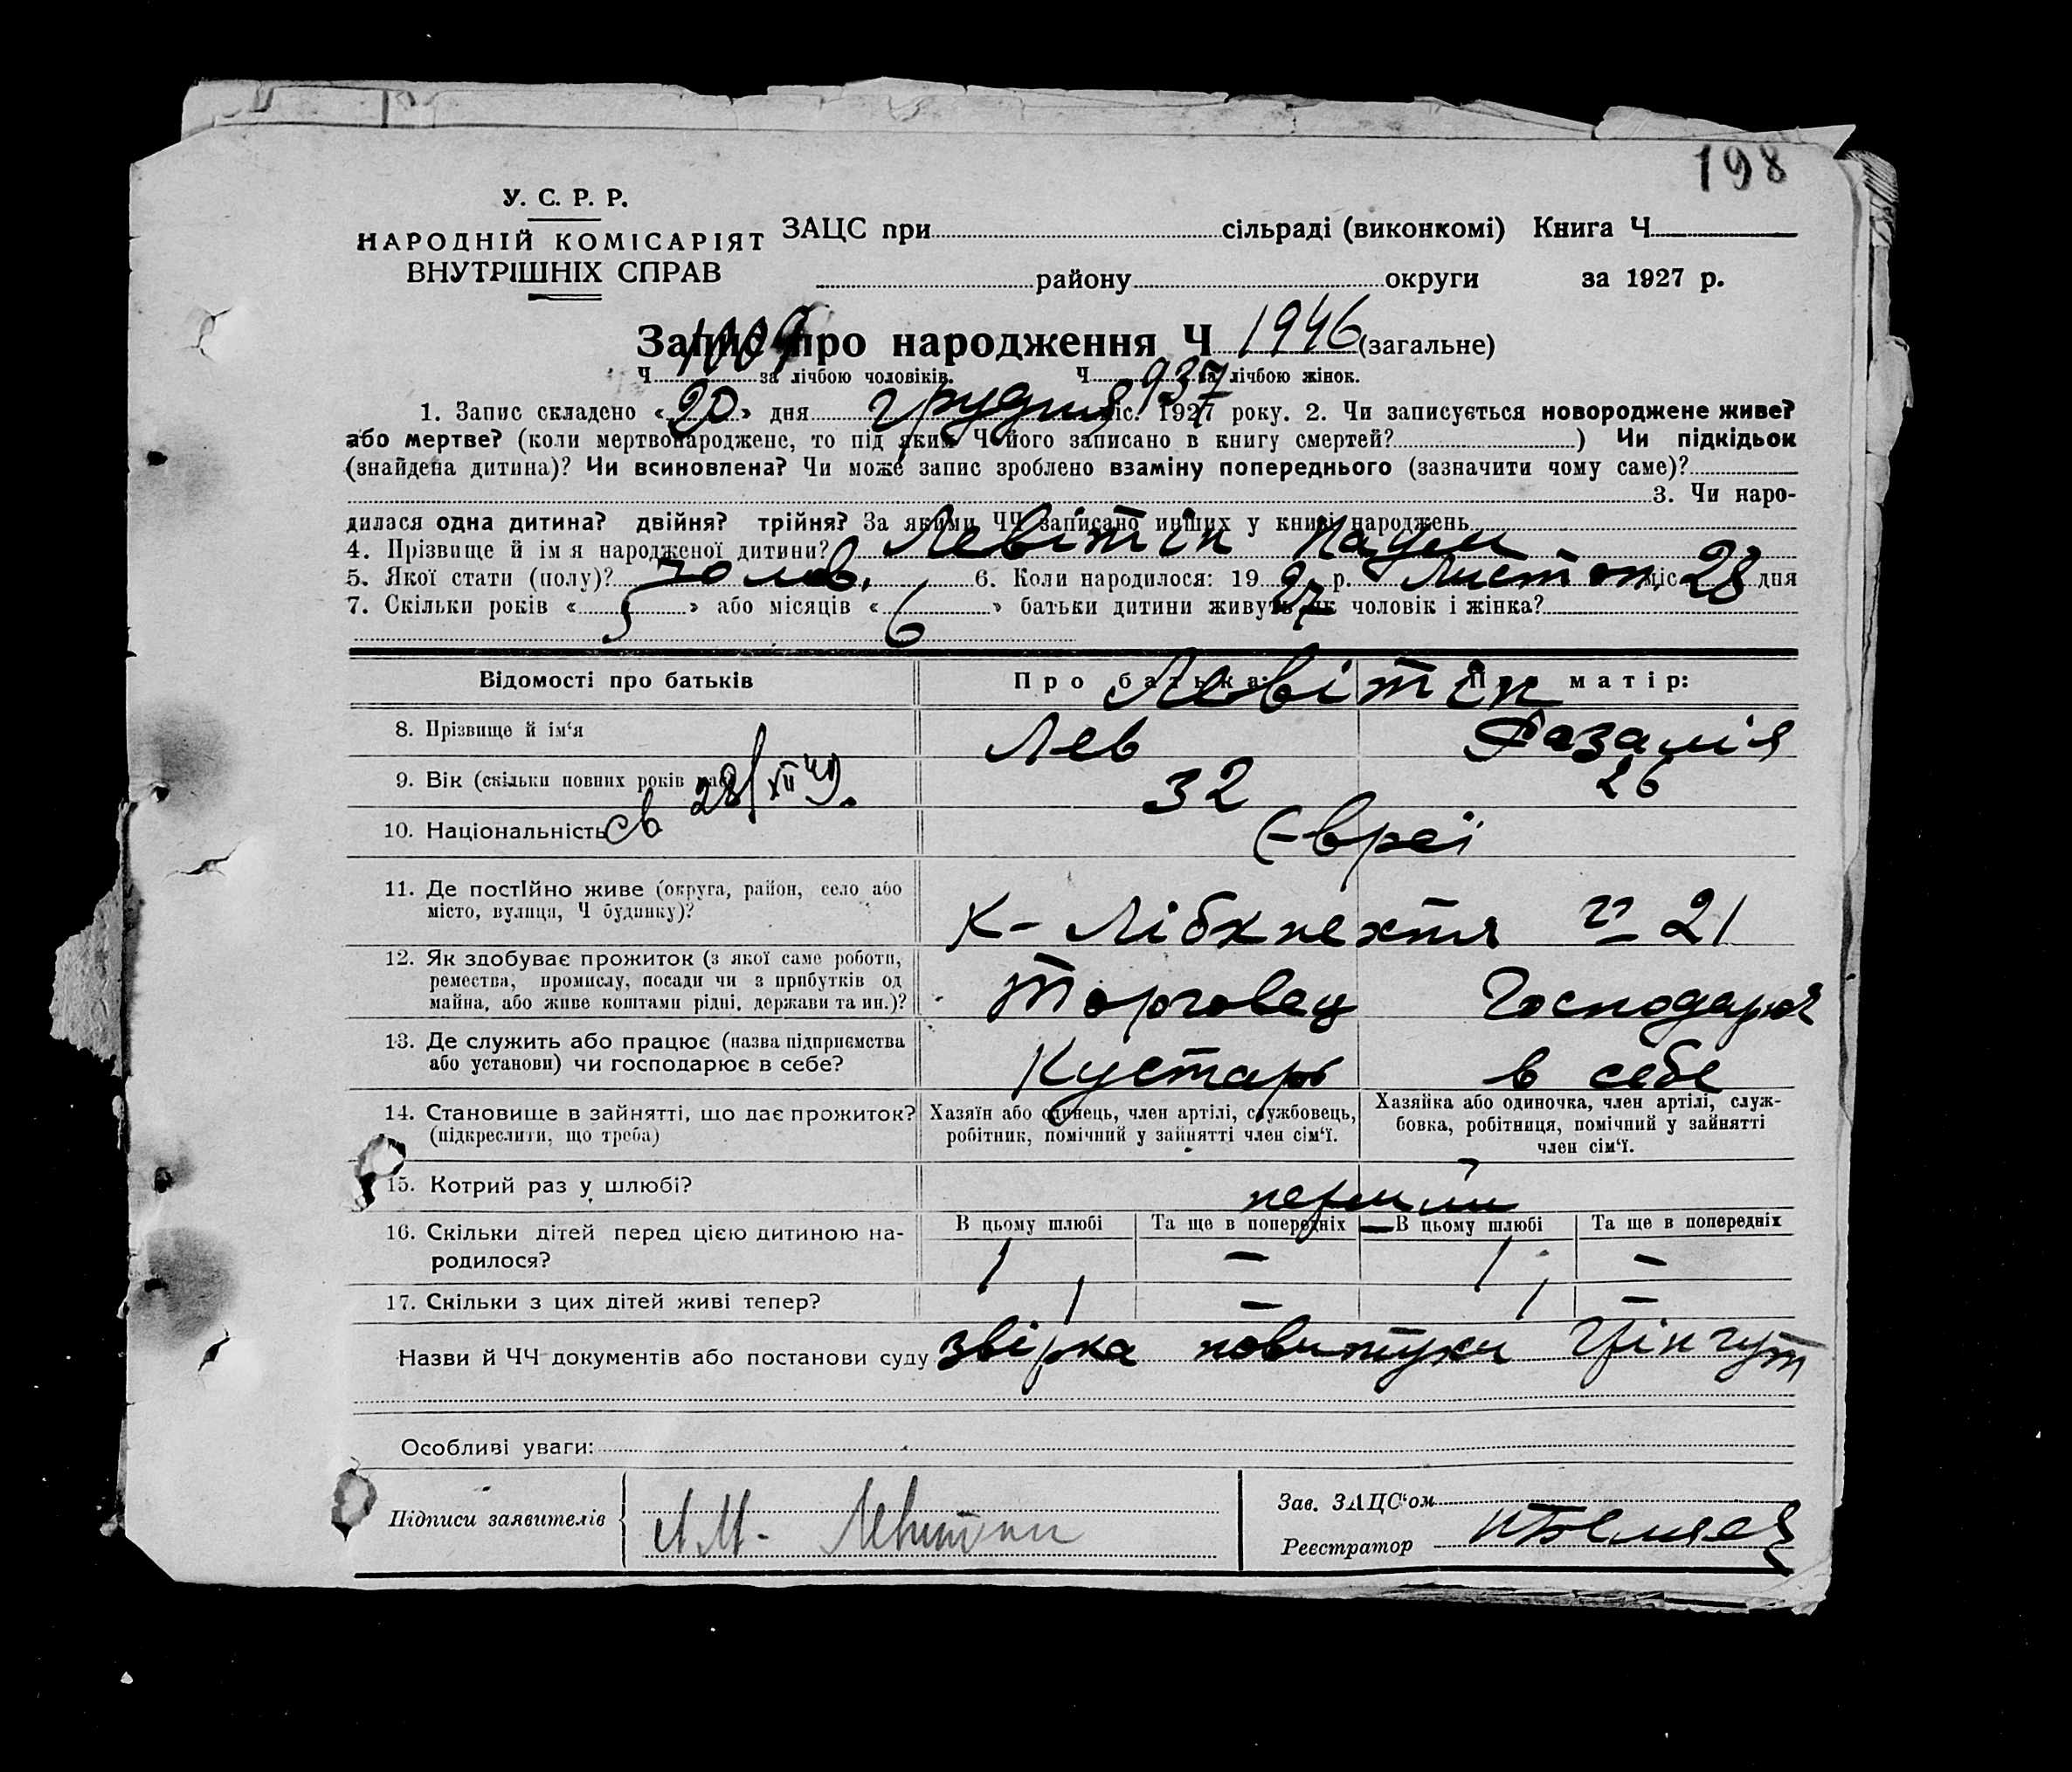 198
У. С. Р. Р.
НАРОДНІЙ КОМІСАРІЯТ
ВНУТРІШНІХ СПРАВ
ЗАЦС при сільраді (виконкомі) Книга Ч.
району округи за 1927 р.
Запис про народження Ч 1946 (загальне)
Ч 1009 за лічбою чоловіків. Ч 937 за лічбою жінок.
1. Запис складено «20» дня грудня міс. 1927 року. 2. Чи записується новороджене живе?
або мертве? (коли мертвонароджене, то під яким Ч його записано в книгу смертей? ) Чи підкідьок
(знайдена дитина)? Чи всиновлена? Чи може запис зроблено взаміну попереднього (зазначити чому саме)?
3. Чи наро-
дилася одна дитина? двійня? трійня? За якими ЧЧ записано инших у книзі народжень
4. Прізвище й ім'я народженої дитини? Левітін
5. Якої стати (полу)? чолов. 6. Коли народилося: 1927 р. Листоп. міс 28 дня
7. Скільки років «5» або місяців «6» батьки дитини живуть як чоловік і жінка?
Відомості про батьків Про батька: Про матір:
Левітін
8. Прізвище й ім'я Лев Розалія
9. Вік (скільки повних років має) 32 26
св 28/XII 49.
10. Національність Євреї
11. Де постійно живе (округа, район, село або
місто, вулиця, Ч будинку)? К- Лібкнехтя № 21
12. Як здобуває прожиток (з якої саме роботи,
ремества, промислу, посади чи з прибутків од
майна, або живе коштами рідні, держави та ин.)? Торговец Господарюя
13. Де служить або працює (назва підприємства
або установи) чи господарює в себе? Кустарь в себе
14. Становище в зайнятті, що дає прожиток?
(підкреслити, що треба)
Хазяїн або одинець, член артілі, службовець,
робітник, помічний у зайнятті член сім'ї.
Хазяйка або одиночка, член артілі, служ-
бовка, робітниця, помічний у зайнятті
член сім'ї.
15. Котрий раз у шлюбі? перший
В цьому шлюбі Та ще в попередніх В цьому шлюбі Та ще в попередніх
16. Скільки дітей перед цією дитиною на-
родилося? 1 — 1 —
17. Скільки з цих дітей живі тепер? 1 — 1 —
Назви й ЧЧ документів або постанови суду звірка повитухи
Особливі уваги:
Підписи заявителів Л.М. Левитин
Зав. ЗАЦС'ом
Реєстратор